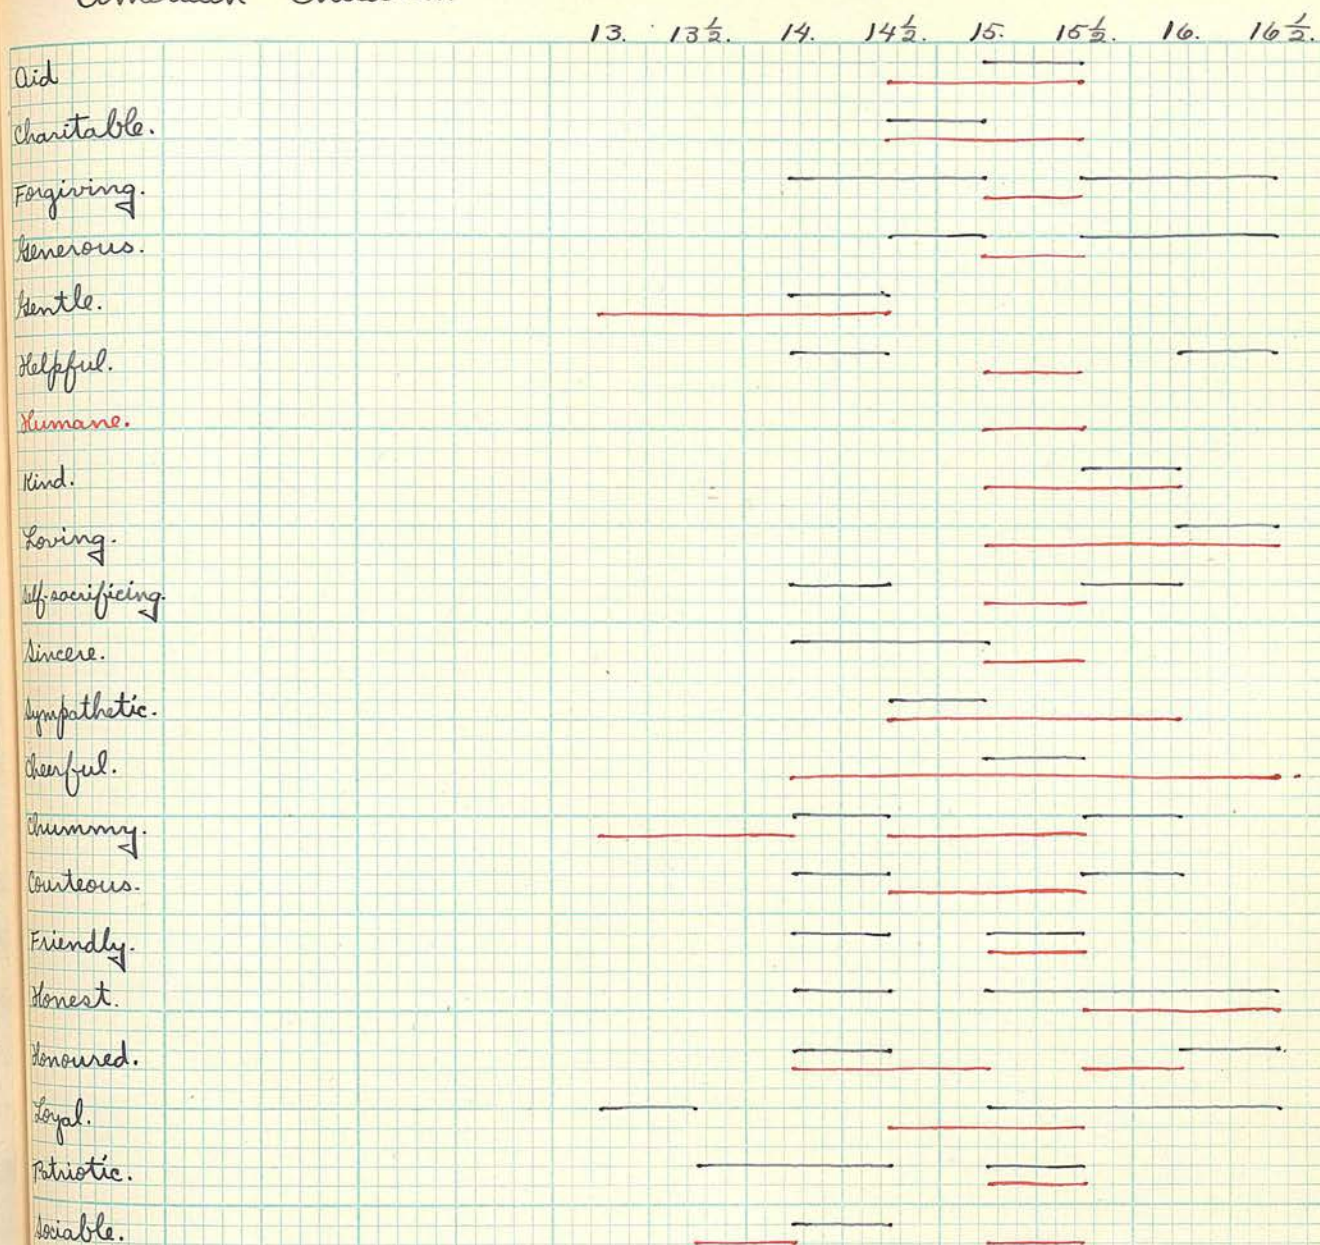 American
13. 13½. 14. 14½. 15. 15½. 16. 16½.
Aid
Charitable.
Forgiving.
Generous.
Gentle.
Helpful.
Humane.
Kind.
Loving.
Self-sacrificing.
Sincere.
Sympathetic.
Cheerful.
Chummy.
Courteous.
Friendly.
Honest.
Honoured.
Loyal.
Patriotic.
Sociable.